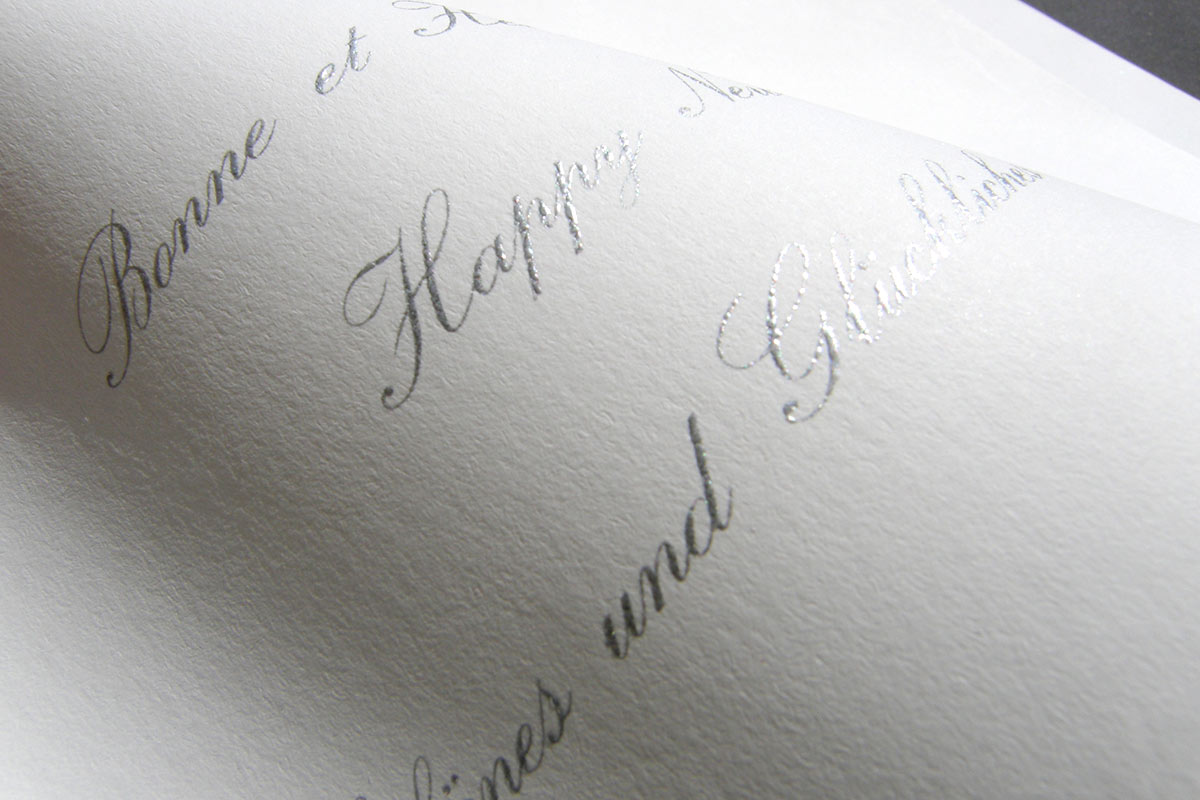 Bonne et
Happy New
önes und Glückliches